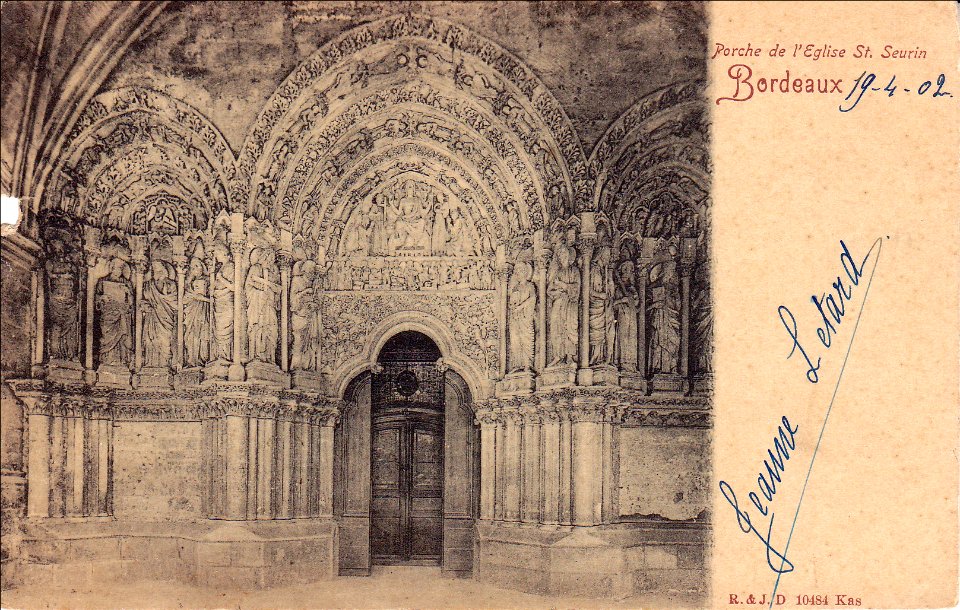 Porche de l'Eglise St. Seurin
Bordeaux 19-4-02.
Jeanne Letard
R. & J. D 10484 Kas